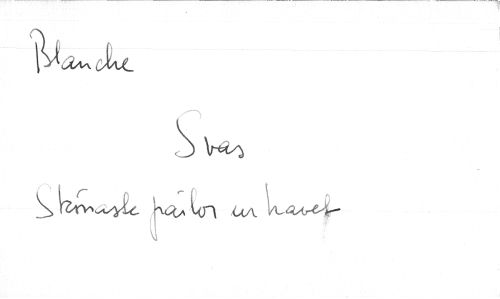 Blanche
Svas
Skönaste pärlor ur havet